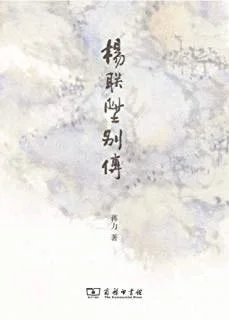 楊联陞别傳
蒋力 著
商務印書館
The Commercial Press